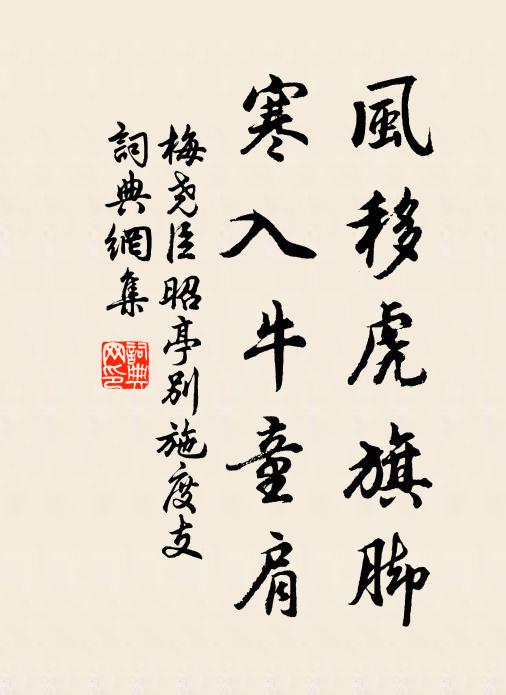 風移虎旗脚
寒入牛童肩
梅尧臣昭亭別施度支
詞典網集
詞典網印